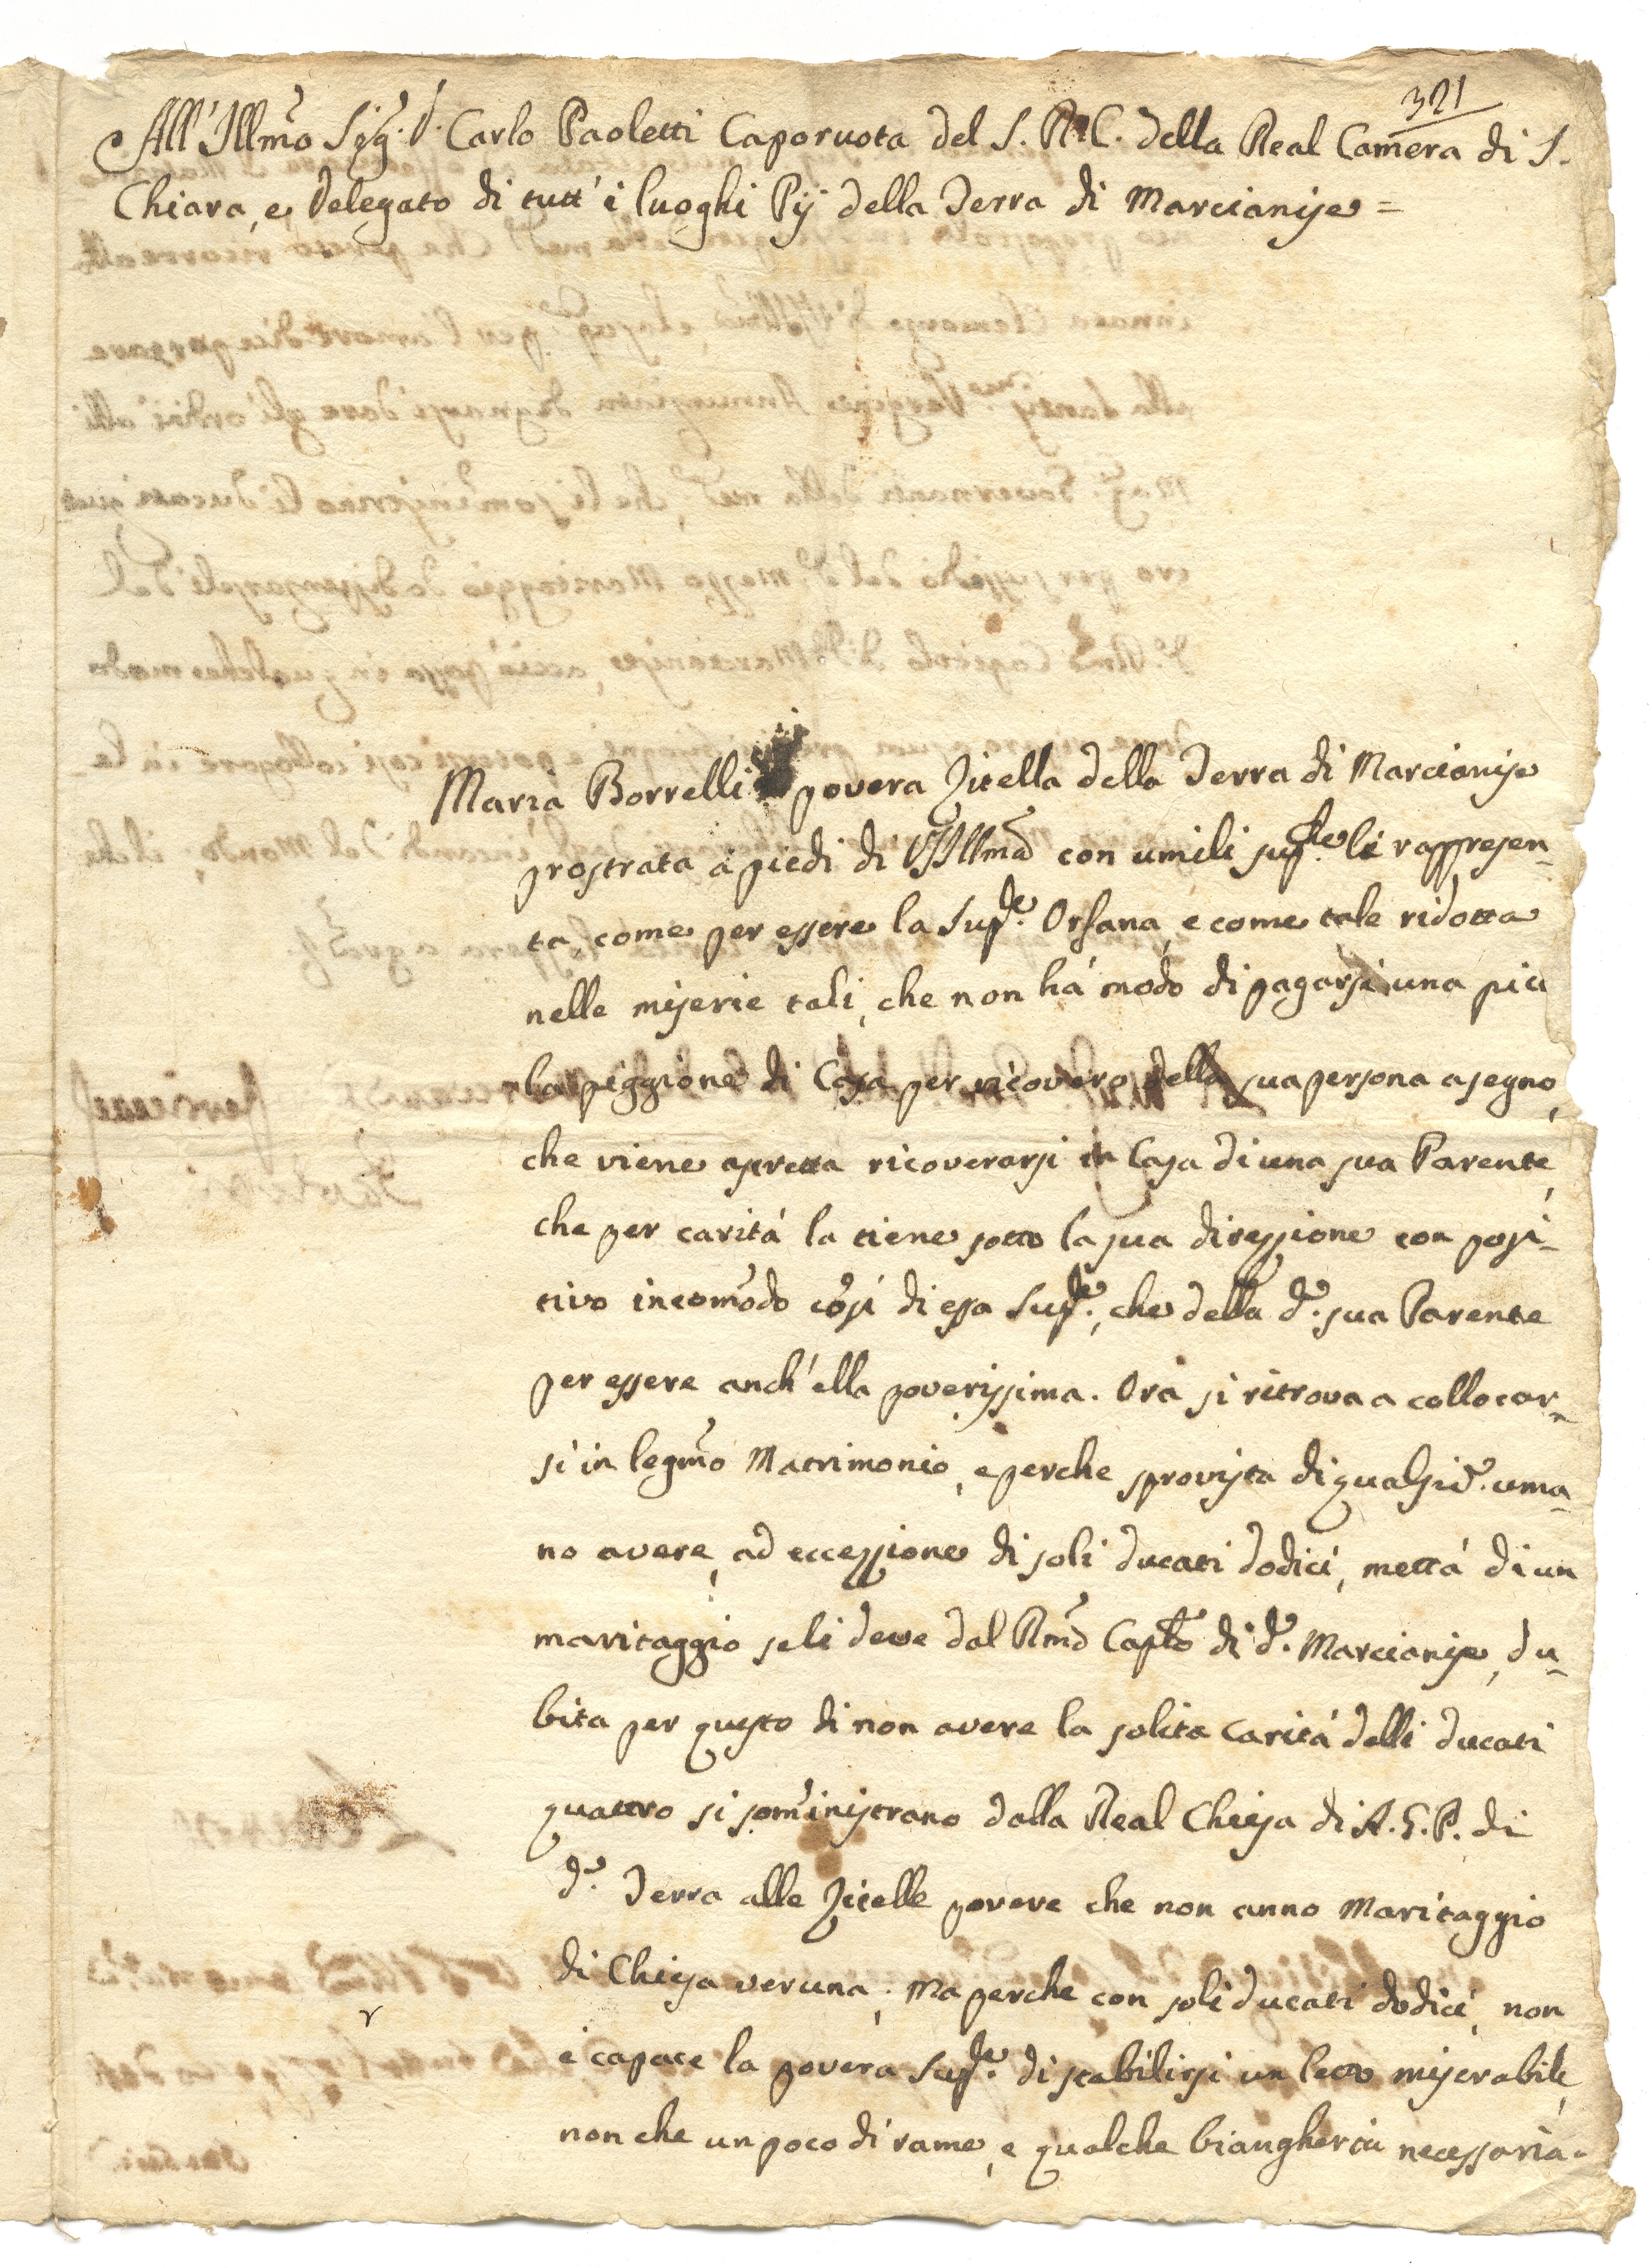 321
All' Illmo Sig. D. Carlo Paoletti Caporuota del S. R. C. della Real Camera di S.
Chiara, e Delegato di tutt' i luoghi Pij della Terra di Marcianise =
Maria Borrelli povera Zitella della Terra di Marcianise
prostrata a piedi di V.S. Illma con umili suple li rappresen-
ta, come per essere la Supte. Orfana, e come tale ridotta
nelle miserie tali, che non há modo di pagarsi una pic
la piggione di Casa per ricovero della sua persona a segno,
che viene astretta ricoverarsi in Casa di una sua Parente,
che per caritá la tiene sotto la sua direzzione con posi-
tivo incomodo cosí di essa Supte., che della da. sua Parente
per essere anch' ella poverissima. Ora si ritrova a collocar-
si in legmo Matrimonio, e perche sprovista di qualsia. uma-
no avere, ad eccezzione di soli ducati dodici, mettá di un
maritaggio seli deve dal Rmo Caplo di da. Marcianise, du-
bita per questo di non avere la solita caritá delli ducati
quattro si somministrano dalla Real Chiesa di A. G. P. di
da. Terra alle Zitelle povere che non anno Maritaggio
di Chiesa veruna; Ma perche con soli ducati dodici, non
é capace la povera Supte. di stabilirsi un letto miserabile,
non che un poco di rame, e qualche biangheria necessaria.